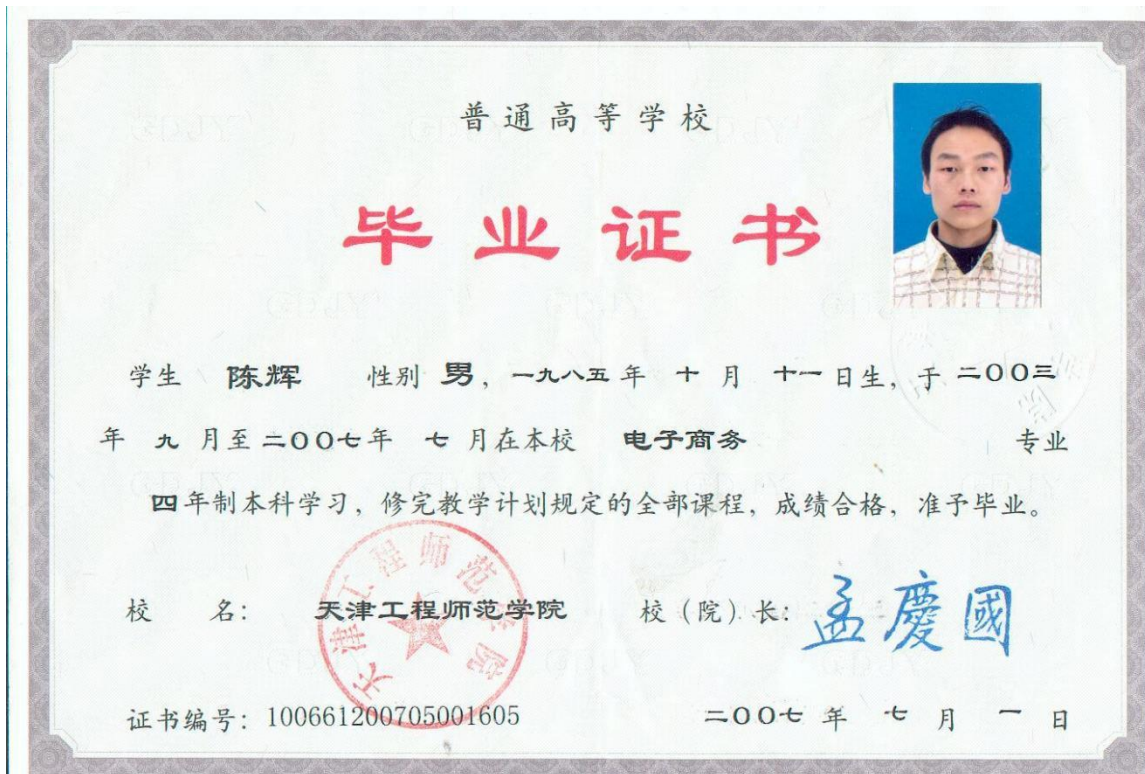 普通高等学校
毕业证书
学生 陈辉 性别 男，一九八五 年 十 月 十一 日生，于 二00三
年 九 月至 二00七 年 七 月在本校 电子商务 专业
四年制本科学习，修完教学计划规定的全部课程，成绩合格，准予毕业。
校 名： 天津工程师范学院 校（院）长： 孟慶國
天津工程师范学院
证书编号：100661200705001605 二00七 年 七 月 一 日